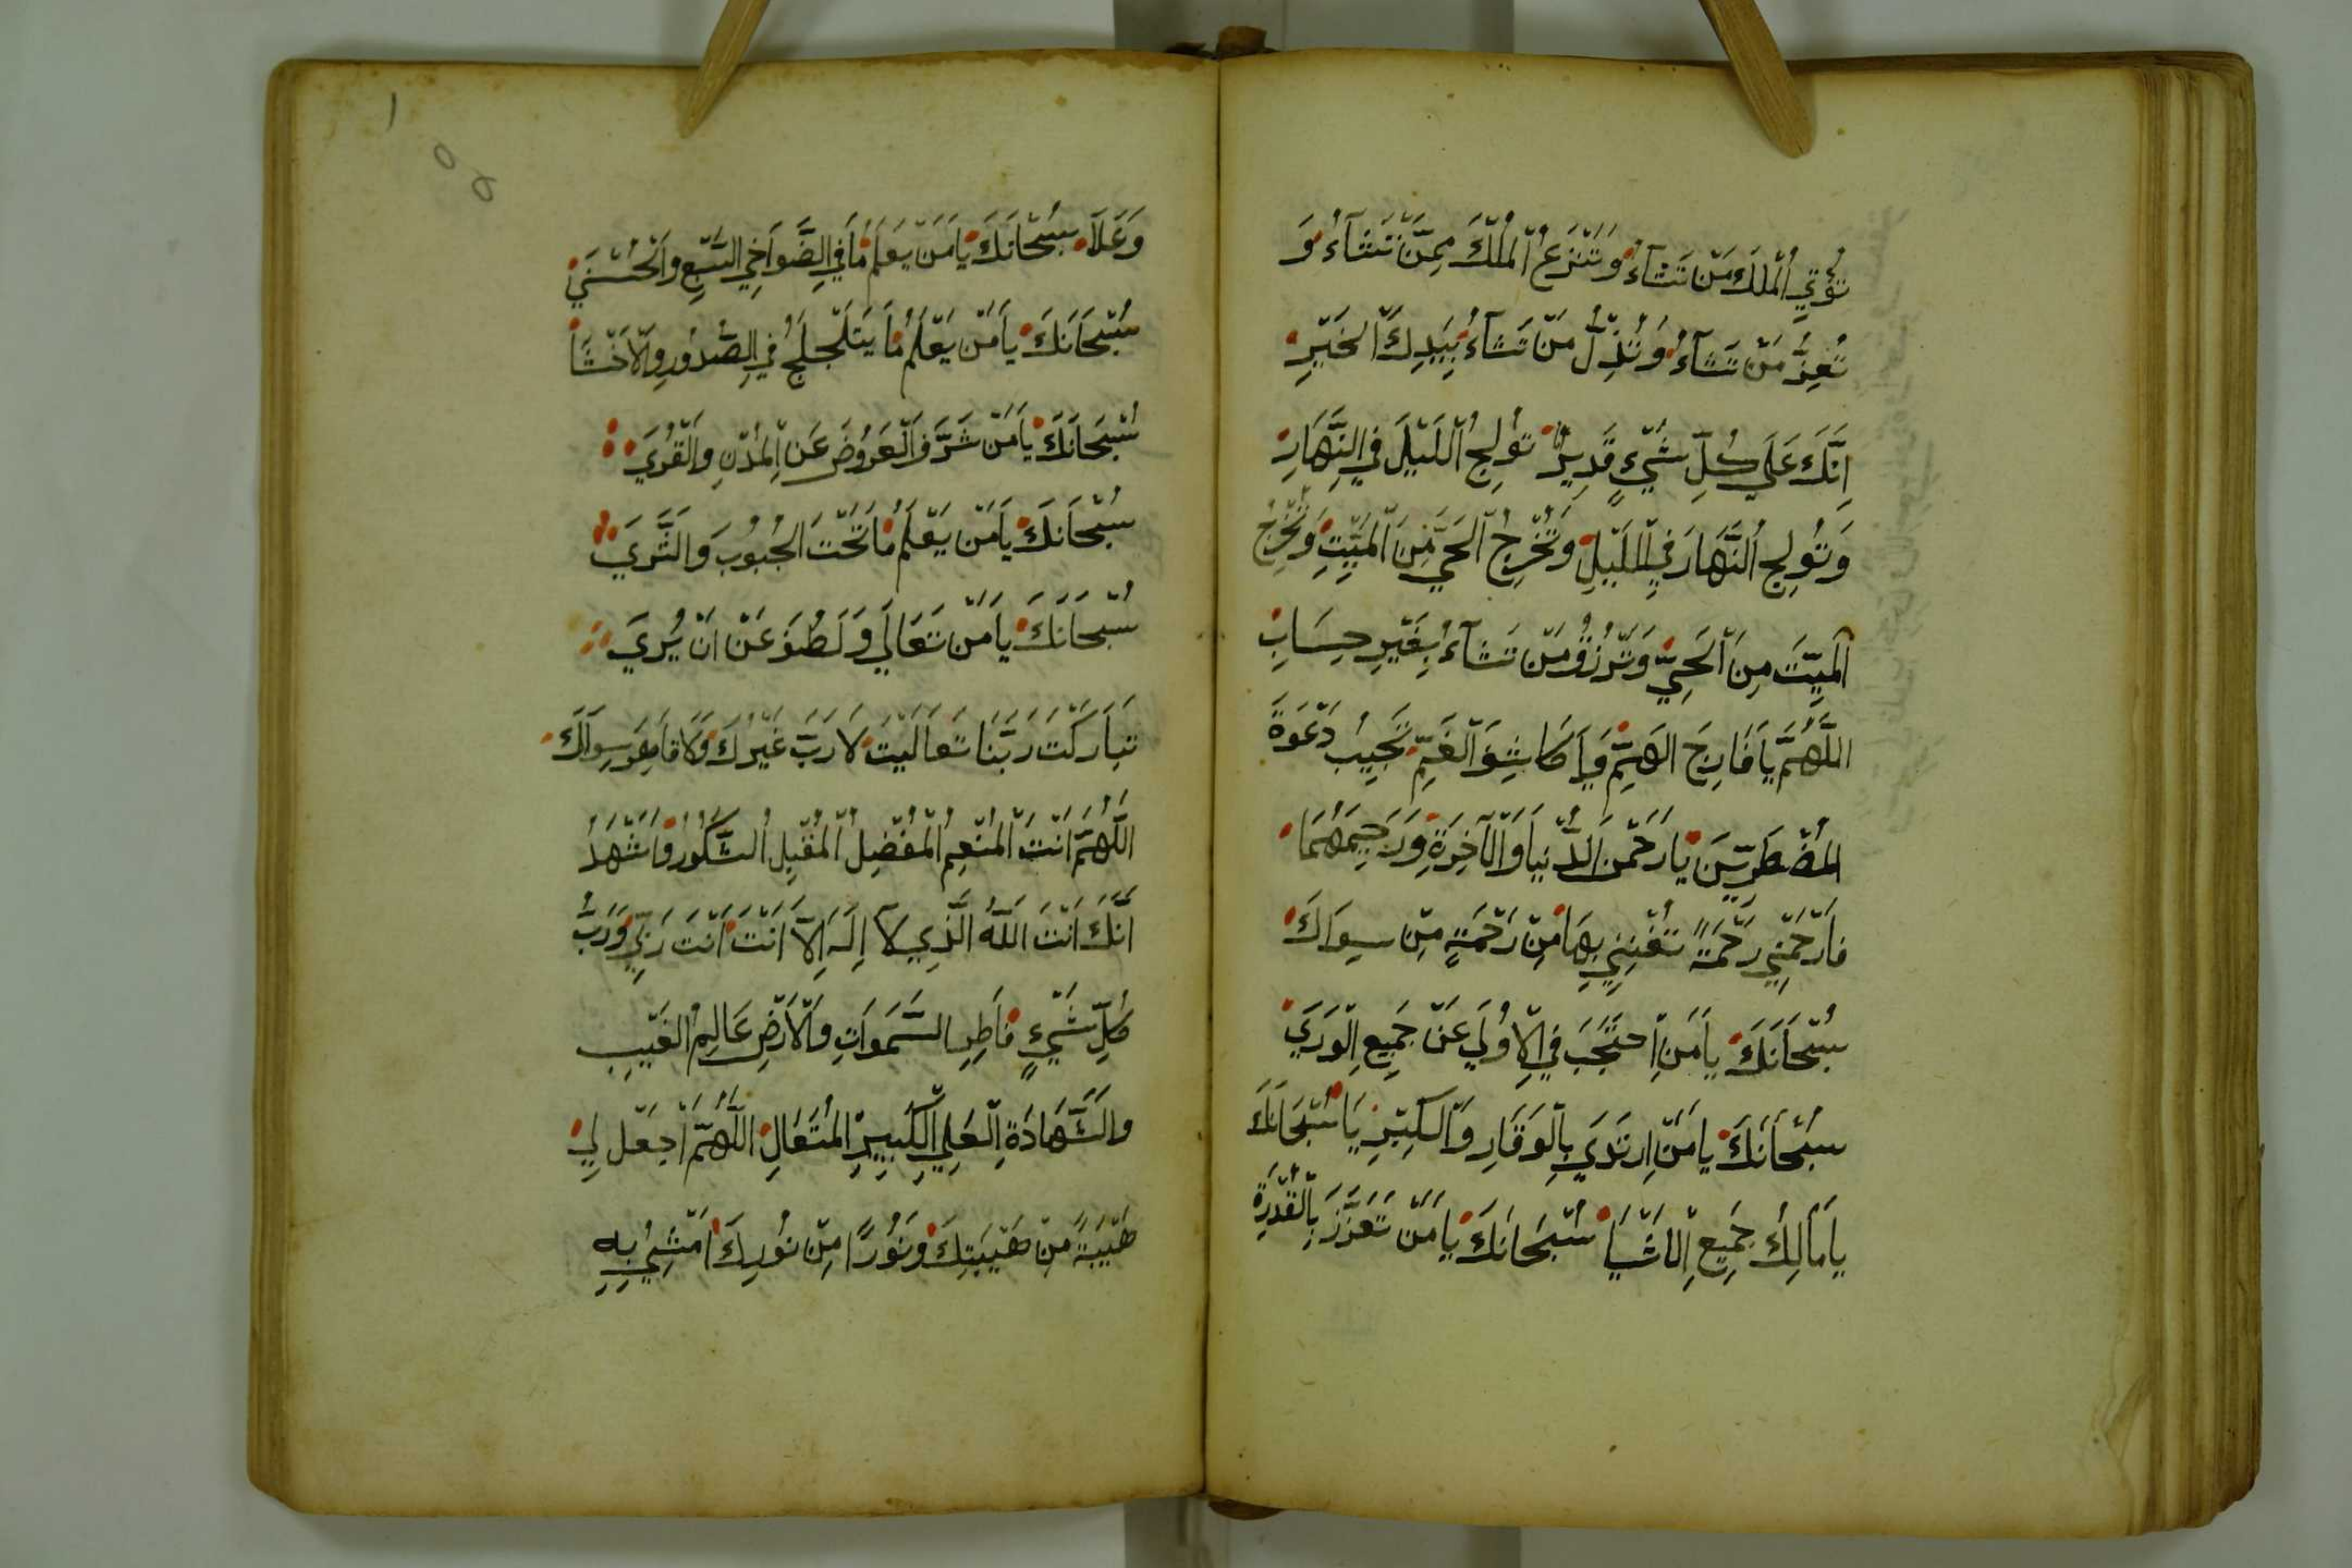 تُؤْتِي الْمُلْكَ مَنْ تَشَآءُ وَتَنْزِعُ الْمُلْكَ مِمَّنْ تَشَآءُ وَ
تُعِزُّ مَنْ تَشَآءُ وَتُذِلُّ مَنْ تَشَآءُ بِيَدِكَ الْخَيْرِ
اِنَّكَ عَلَي كُلِّ شَيْءٍ قَدِيرٌ تُولِجُ اللَّيْلَ فِي النَّهَارِ
وَتُولِجُ النَّهَارَ فِي اللَّيْلِ وَتُخْرِجُ الْحَيَّ مِنَ الْمَيِّتِ وَتُخْرِجُ
الْمَيِّتَ مِنَ الْحَيِّ وَتَرْزُقُ مَنْ تَشَآءُ بِغَيْرِ حِسَابٍ
اللَّهُمَّ يَا فَارِجَ الْهَمِّ وَيَا كَاشِفَ الْغَمِّ مُجِيبُ دَعْوَةَ
الْمُضْطَرِّينَ يَا رَحْمَنَ الدُّنْيَا وَالْآخِرَةِ وَرَحِيمَهُمَا
فَارْحَمْنِي رَحْمَةً تُغْنِينِي بِهَا مِنْ رَحْمَةٍ مِنْ سِوَاكَ
سُبْحَانَكَ يَا مَنِ احْتَجَبَ فِي الْاُولَي عَنْ جَمِيعِ الْوَرَيَ
سُبْحَانَكَ يَا مَنِ ارْتَدَيَ بِالْوَقَارِ وَالْكِبْرِيَا سُبْحَانَكَ
يَا مَالِكُ جَمِيعِ الْاَشْيَا سُبْحَانَكَ يَا مَنْ تَعَزَّزَ بِالْقُدْرَةِ
وَعَلَا سُبْحَانَكَ يَا مَنْ يَعْلَمُ مَا فِي الضَّوَاخِي السَّبْعِ وَالْحُسْنَيَ
سُبْحَانَكَ يَا مَنْ يَعْلَمُ مَا يَتَلَجْلَجُ فِي الصُّدُورِ وَالْاَحْشَا
سُبْحَانَكَ يَا مَنْ شَرَّفَ الْعَرُوضَ عَنِ الْمُدْنِ وَالْقُرَيَ
سُبْحَانَكَ يَا مَنْ يَعْلَمُ مَا تَحْتَ الْجُبُوبَ وَالثَّرَيَ
سُبْحَانَكَ يَا مَنْ تَعَالَي وَلَطُفَ عَنْ اَنْ يُرَيَ
تَبَارَكْتَ رَبَّنَا تَعَالَيْتَ لَا رَبَّ غَيْرُكَ وَلَا قَاهِرَ سِوَاكَ
اللَّهُمَّ اَنْتَ الْمُنْعِمُ الْمُفْضِلُ الْمُقِيلُ الشَّكُورُ وَاَشْهَدُ
اَنَّكَ اَنْتَ اللَّهُ الَّذِي لَا اِلَهَ اِلَّا اَنْتَ اَنْتَ رَبِّي وَرَبُّ
كُلِّ شَيْءٍ فَاطِرِ السَّمَوَاتِ وَالْاَرْضِ عَالِمُ الْغَيْبِ
وَالشَّهَادَةِ الْعَلِيِ الْكَبِيرِ الْمُتَعَالِ اللَّهُمَّ اجْعَل لِي
هَيْبَةً مِنْ هَيْبَتِكَ وَنُورًا مِنْ نُورِكَ اَمْشِيُ بِهِ